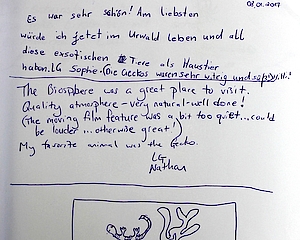 01.01.2017
Es war sehr schön! Am liebsten
würde ich jetzt im Urwald leben und all
diese exsotischen Tiere als Haustier
haben. LG Sophie (Die Geckos waren sehr witzig und
The Biosphere was a great place to visit.
Quality atmosphere - very natural - well done!
(The moving film feature was a bit too quiet... could
be louder ... otherwise great!)
My favorite animal was the Gecko.
LG
Nathan